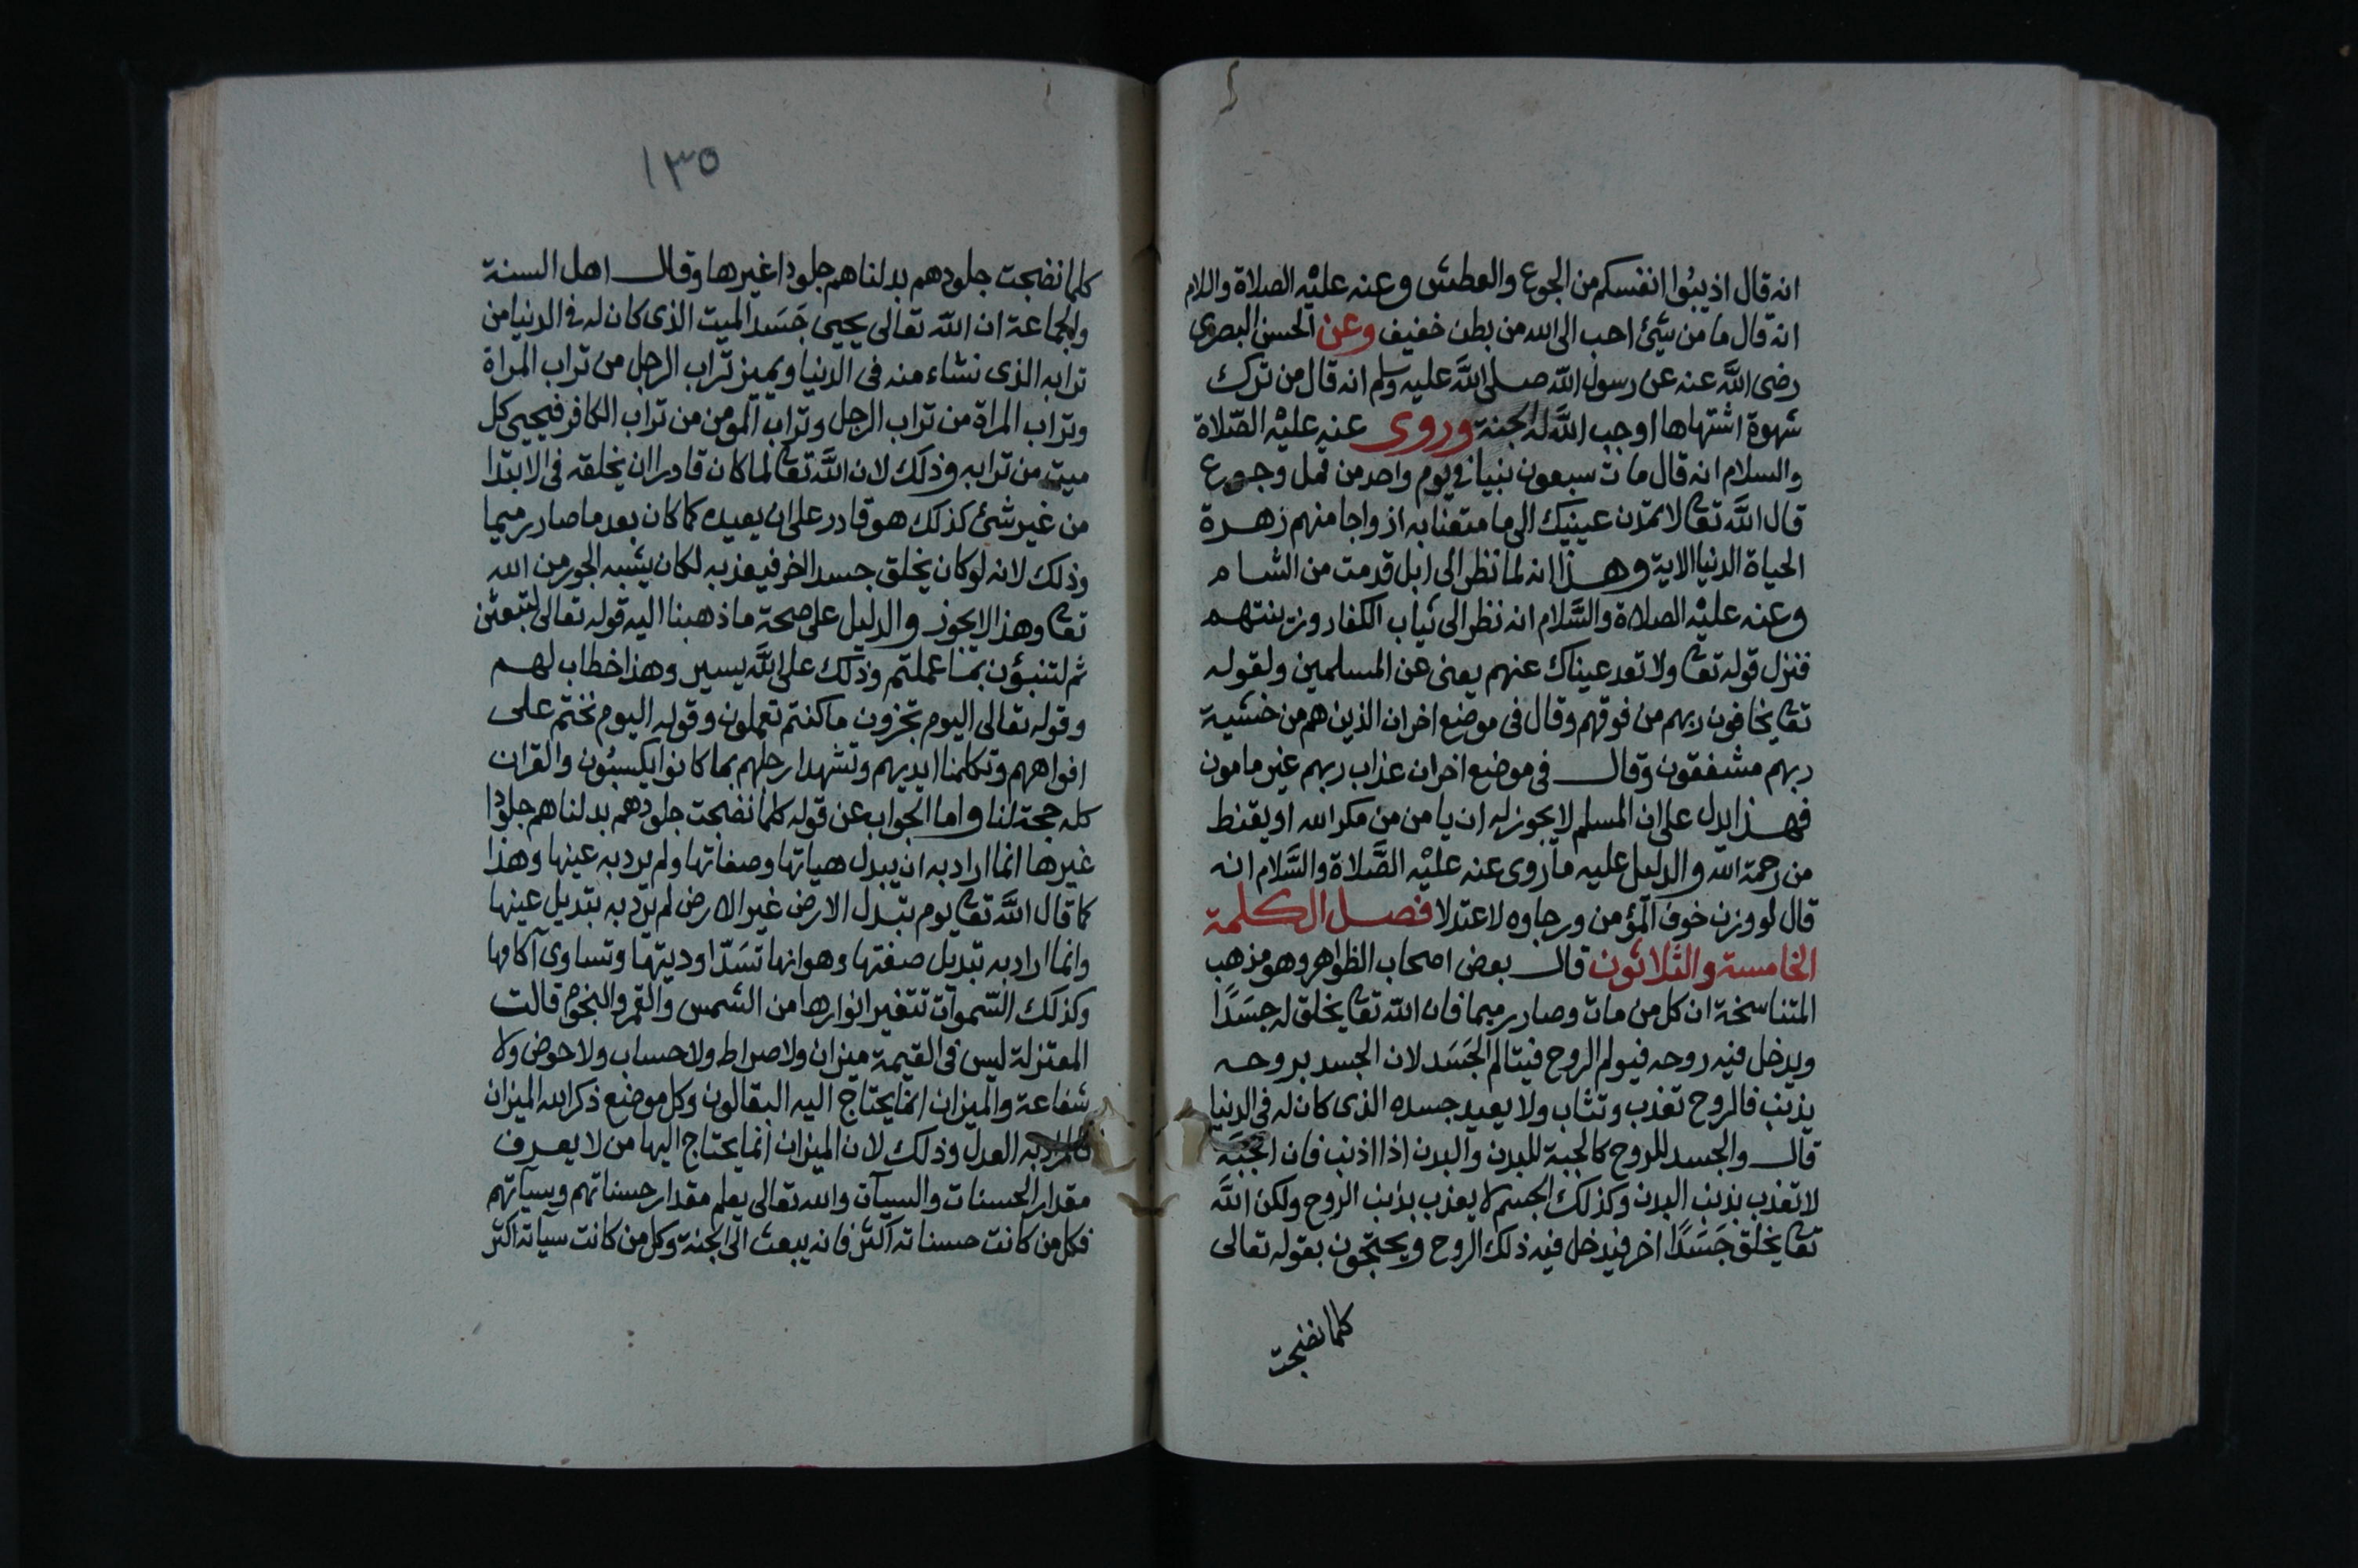 انه قال اذيبوا انفسكم من الجوع والعطش وعنه عليه الصلاة واللام
انه قال ما من شئ احب الى الله من بطن خفيف وعن الحسن البصرى
رضى الله عنه عن رسول الله صلى الله عليه وسلم انه قال من ترك
شهوة اشتهاها اوجب الله له الجنة وروى عنه عليه الصلاة
والسلام انه قال مات سبعون نبيا فى يوم واحد من قمل وجوع
قال الله تعا لا تمدن عينيك الى ما متعنا به ازواجا منهم زهرة
الحياة الدنيا الاية وهذا انه لما نظر الى ابل قدمت من الشام
وعنه عليه الصلاة والسلام انه نظر الى ثياب الكفار وزينتهم
فنزل قوله تعا ولا تعد عيناك عنهم يعنى عن المسلمين ولقوله
تعا يخافون ربهم من فوقهم وقال فى موضع اخر ان الذين هم من خشية
ربهم مشفقون وقال فى موضع اخر ان عذاب ربهم غير مامون
فهذا يدل على ان المسلم لا يجوز له ان يامن من مكر الله او يقنط
من رحمة الله والدليل عليه ما روى عنه عليه الصلاة والسلام انه
قال لو وزن خوف المؤمن ورجاوه لاعتدلا فصل الكلمة
الخامسة والثلاثون قال بعض اصحاب الظواهر وهو مذهب
المتناسخة ان كل من مات وصار رميما فان الله تعا يخلق له جسدا
ويدخل فيه روحه فيولم الروح فيتالم الجسد لان الجسد بروحه
يذنب فالروح تعذب وتثاب ولا يعيد جسده الذى كان له فى الدنيا
قال والجسد للروح كالجبة للبدن والبدن اذا اذنب فان الجبة
لا تعذب بذنب البدن وكذلك الجسم لا يعذب بذنب الروح ولكن الله
تعا يخلق جسدا اخر فيدخل فيه ذلك الروح ويحتجون بقوله تعالى
كلما نضجت
١٣٥
كلما نضجت جلودهم بدلناهم جلودا غيرها وقال اهل السنة
والجماعة ان الله تعالى يحيى جسد الميت الذى كان له فى الدنيا من
ترابه الذى نشاء منه فى الدنيا ويميز تراب الرجل من تراب المراة
وتراب المراة من تراب الرجل وتراب المومن من تراب الكافر فيحيى كل
ميت من ترابه وذلك لان الله تعا لما كان قادرا ان يخلقه فى الابتدا
من غير شئ كذلك هو قادر على ان يعيده كما كان بعد ما صار رميما
وذلك لانه لو كان يخلق جسدا اخر فيعذبه لكان يشبه الجور من الله
تعا وهذا لا يجوز والدليل على صحة ما ذهبنا اليه قوله تعالى لتبعثن
ثم لتنبؤن بما عملتم وذلك على الله يسير وهذا خطاب لهم
وقوله تعالى اليوم تجزون ما كنتم تعملون وقوله اليوم نختم على
افواههم وتكلمنا ايديهم وتشهد ارجلهم بما كانوا يكسبون والقران
كله حجة لنا واما الجواب عن قوله كلما نضجت جلودهم بدلناهم جلودا
غيرها انما اراد به ان يبدل هياتها وصفاتها ولم يرد به عينها وهذا
كما قال الله تعا يوم تبدل الارض غير الارض لم يرد به تبديل عينها
وانما اراد به تبديل صفتها وهو انها تسد اوديتها وتساوى آكامها
وكذلك السموات تتغير انوارها من الشمس والقمر والنجوم قالت
المعتزلة ليس فى القيمة ميزان ولا صراط ولا حساب ولا حوض ولا
شفاعة والميزان انما يحتاج اليه البقالون وكل موضع ذكر الله الميزان
فالمراد به العدل وذلك لان الميزان انما يحتاج اليها من لا يعرف
مقدار الحسنات والسيآت والله تعالى يعلم مقدار حسناتهم وسياتهم
فكل من كانت حسناته اكثر فانه يبعث الى الجنة وكل من كانت سياته اكثر